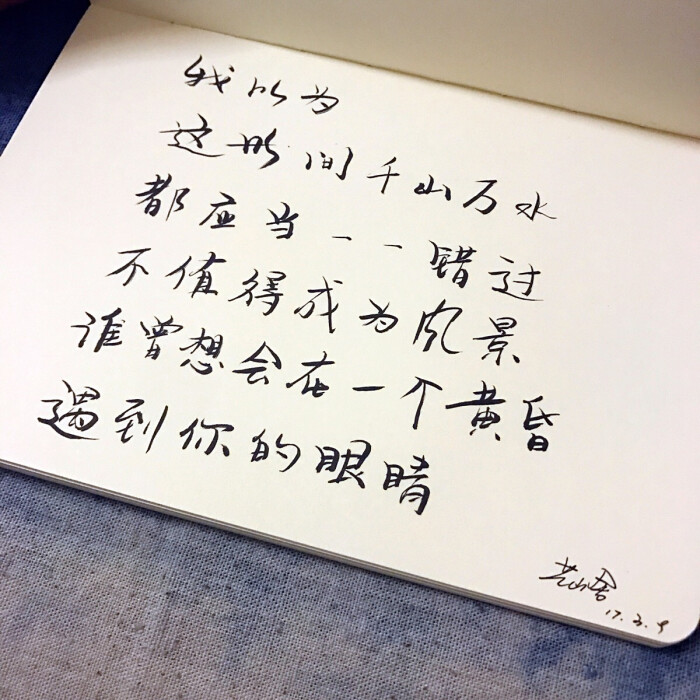 我以为
这世间千山万水
都应当一一错过
不值得成为风景
谁曾想会在一个黄昏
遇到你的眼睛
17.3.9